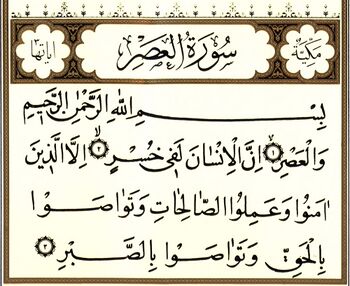 مكية سورة العصر اياتها
بِسْمِ اللهِ الرَّحْمٰنِ الرَّحِيمِ
وَالْعَصْرِ ﴿١﴾ اِنَّ الْاِنْسَانَ لَفٖى خُسْرٍ ﴿٢﴾ اِلَّا الَّذٖينَ
اٰمَنُوا وَعَمِلُوا الصَّالِحَاتِ وَتَوَاصَوْا
بِالْحَقِّ وَتَوَاصَوْا بِالصَّبْرِ ﴿٣﴾